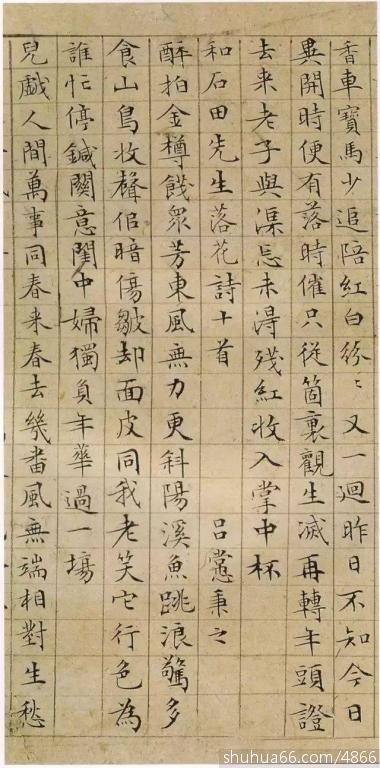 香車寶馬少追陪紅白紛〻又一迴昨日不知今日
異開時便有落時催只從箇裏觀生滅再轉年頭證
去来老子與渠忘未得殘紅收入掌中杯
和石田先生落花詩十首 吕㦂秉之
醉拍金樽餞衆芳東風無力更斜陽溪魚跳浪驚多
食山鳥收聲但暗傷皺却面皮同我老笑它行色為
誰忙停鍼關意閨中婦獨負年華過一塲
兒戲人間萬事同春来春去幾番風無端相對生愁
shuhua66.com/4866